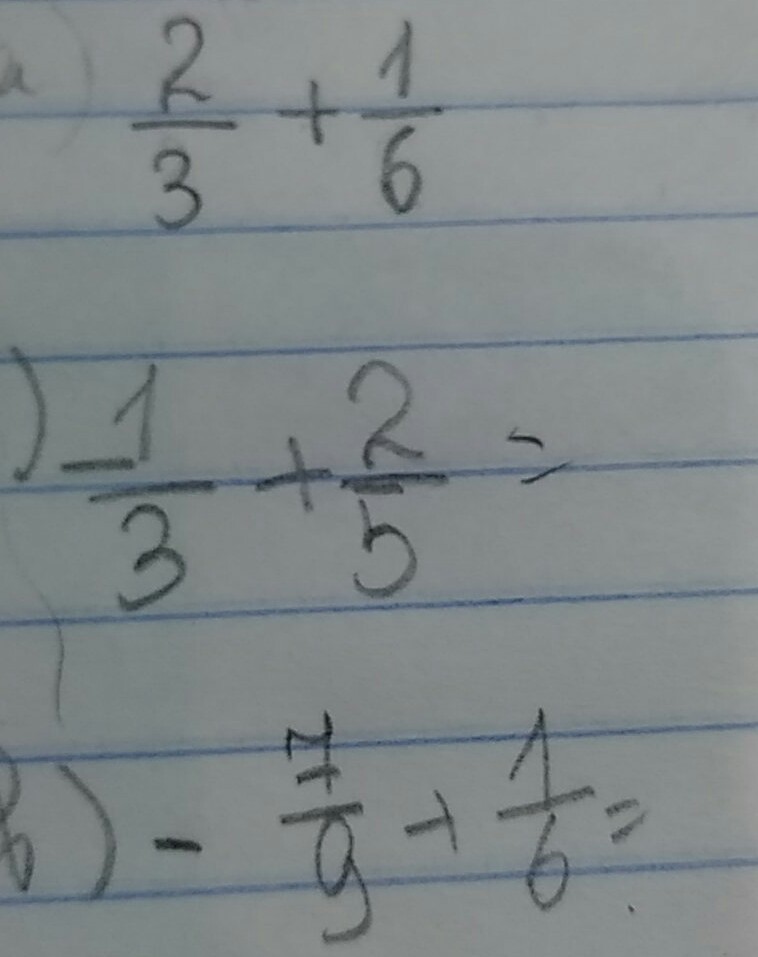 a) 2/3 + 1/6
) -1/3 + 2/5 =
b) - 7/9 + 1/6 =